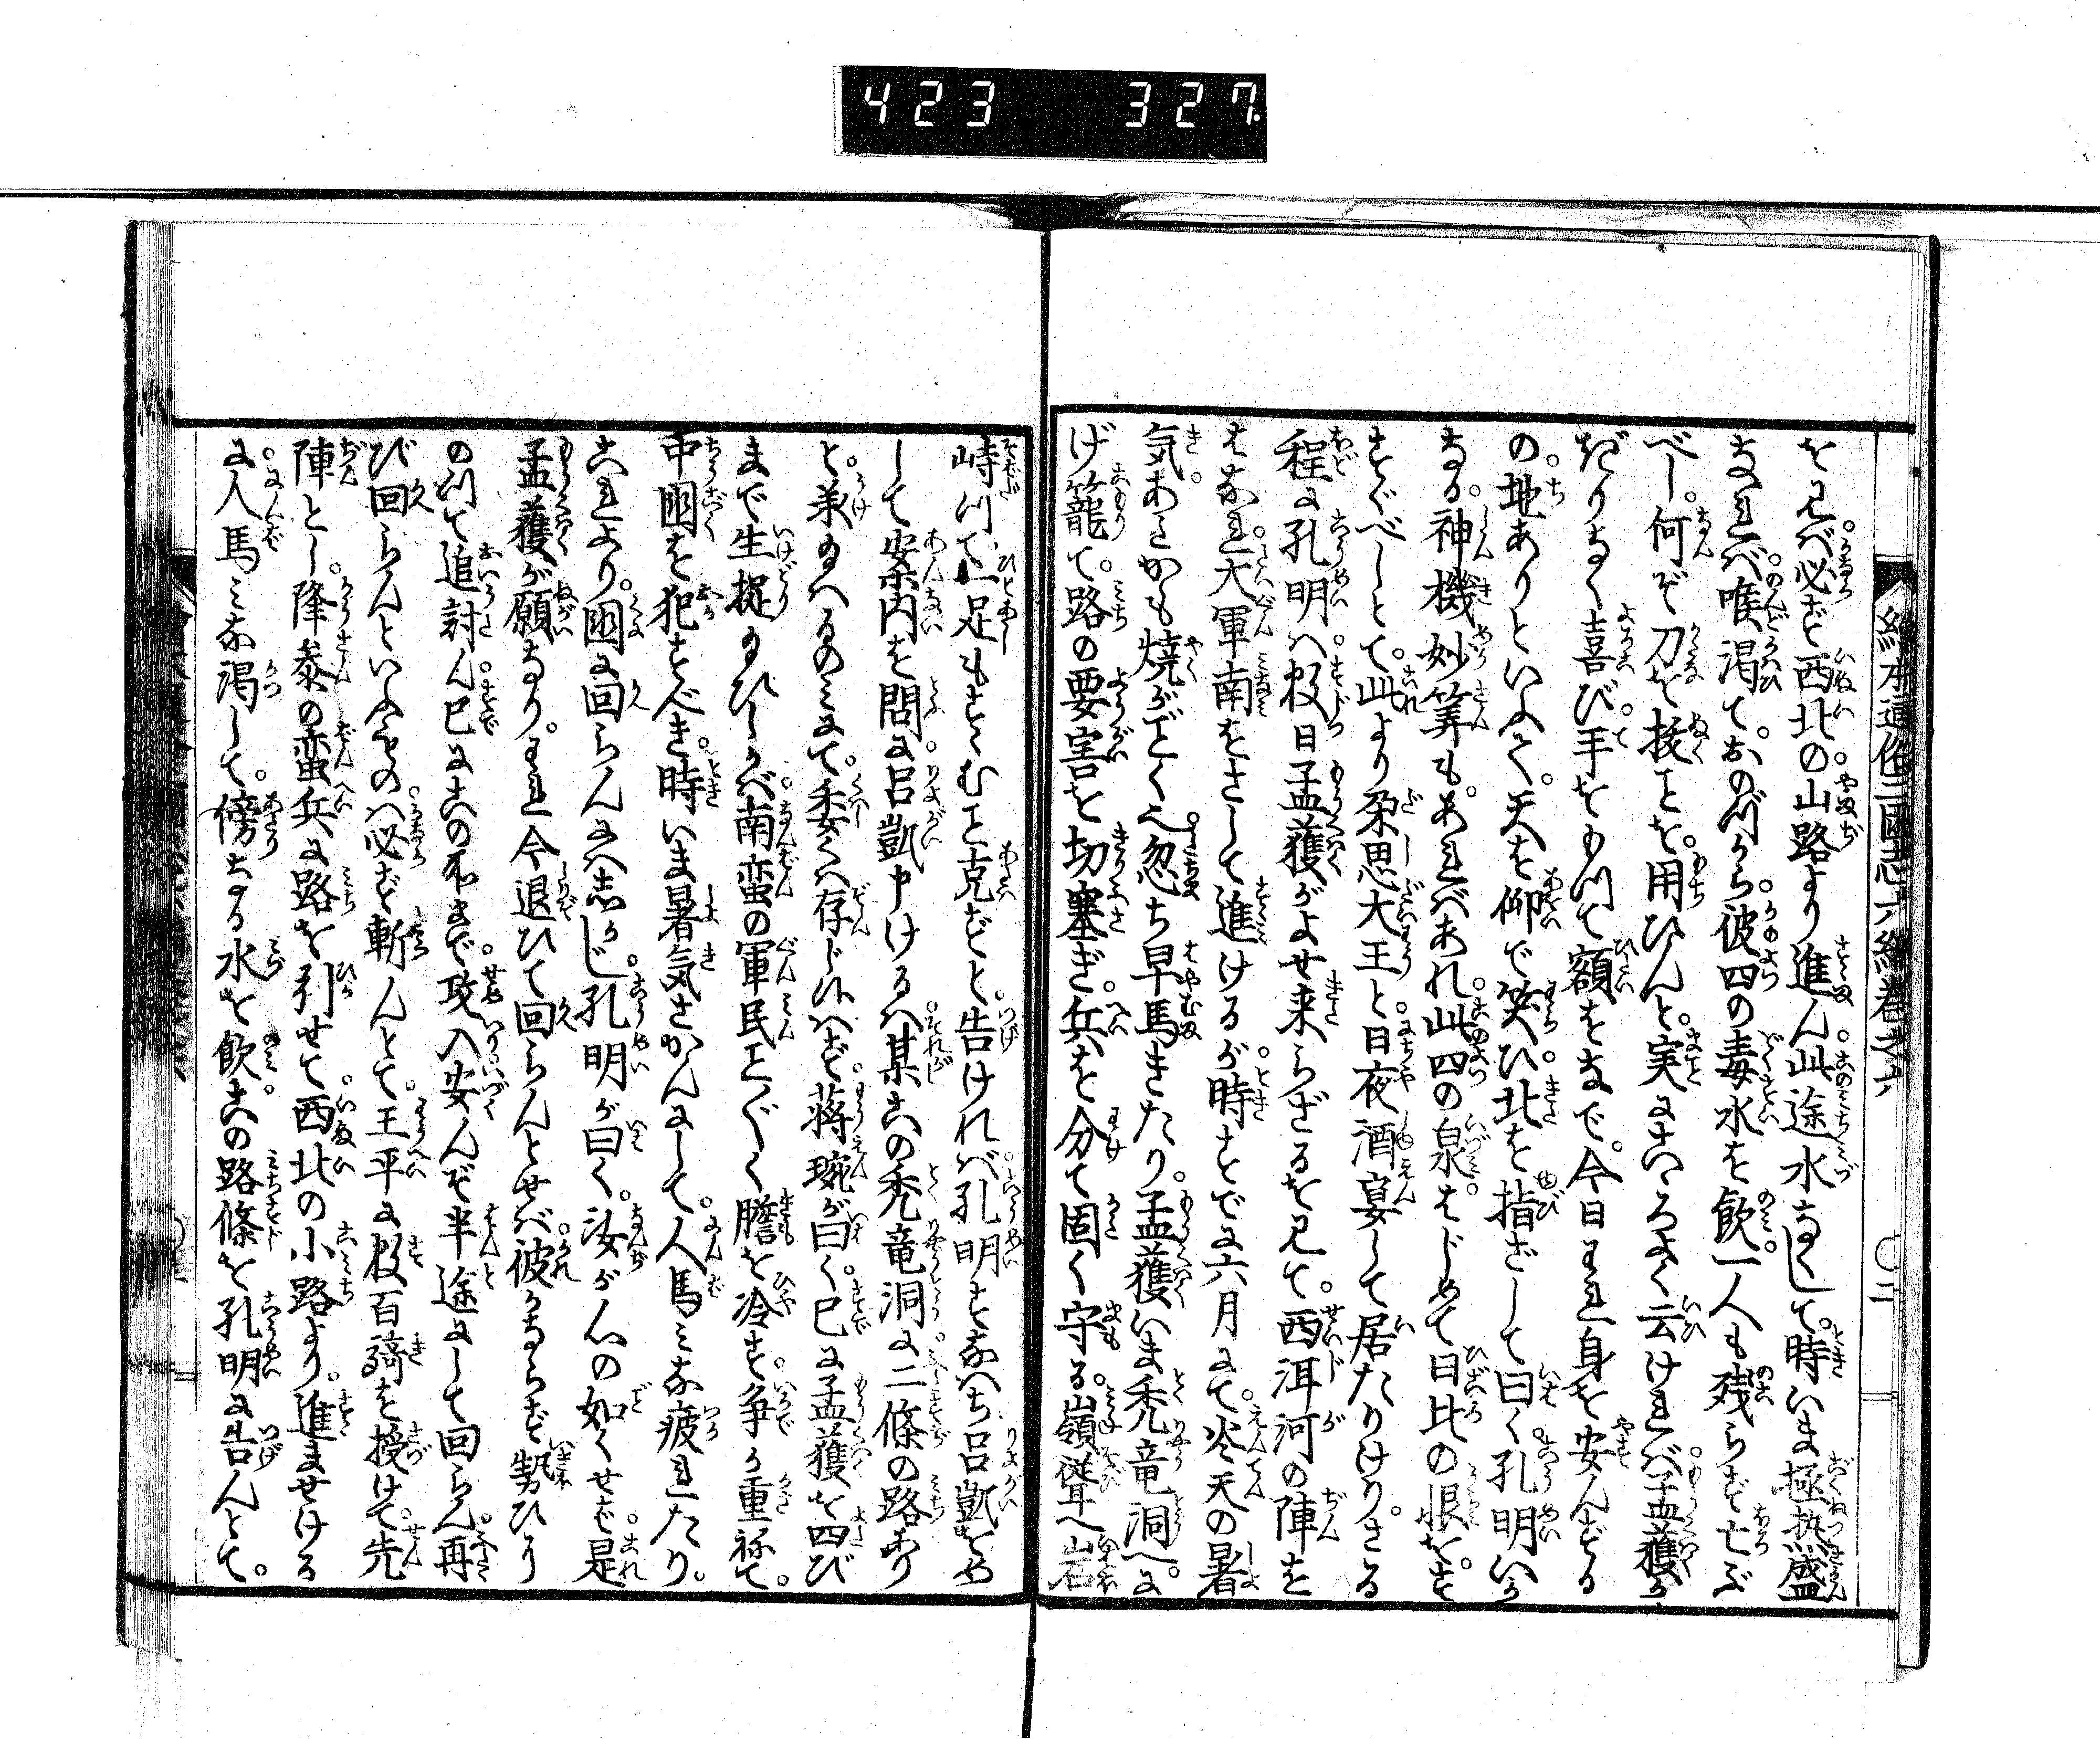 423 327
絵本通俗三国志六編巻之六 〇二
を見ば必ず西北の山路より進ん此途水なくして時いま極熱盛
なれば喉渇ておのづから彼四の毒水を飲一人も残らず亡ぶ
べし何ぞ刀を抜ことを用ひんと実にこゝろよく云ければ孟獲か
ぎりなく喜び手をもつて額をなで今日われ身を安んずる
の地ありといふて天を仰で笑ひ北を指ざして曰く孔明いか
なる神機妙筭もあればあれ此四の泉はじめて日比の恨をす
すぐべしとて此より朶思大王と日夜酒宴して居たりけりさる
程に孔明ハ数日孟獲がよせ来らざるを見て西洱河の陣を
はなれ大軍南をさして進けるが時すでに六月にて炎天の暑
気あたかも焼がごとく忽ち早馬きたり孟獲いま禿竜洞へに
げ籠て路の要害を切塞ぎ兵を分て固く守る嶺聳へ岩
峙つて一足もすゝむこと克ずと告ければ孔明すなハち呂凱をめ
して案内を問に呂凱申けるハ某この禿竜洞に二條の路あり
と承およへるのミにて委くハ存じ候ハず蒋琬が曰く已に孟獲を四び
まで生捉給ひしかバ南蛮の軍民ことごとく膽を冷す争か重祢て
中国を犯すべき時いま暑気さかんにして人馬ミな疲れたり
これより国に回らんにハ志かじ孔明が曰く汝が心の如くせば是
孟獲が願なりわれ今退ひて回らんとせば彼かならず勢ひり
のつて追討ん已にこの所まで攻入安んぞ半途にして回らん再
び回らんといふものハ必ず斬んとて王平に数百騎を授けて先
陣とし降参の蛮兵に路を引せて西北の小路より進ませける
に人馬ミな渇して傍なる水を飲この路條を孔明に告んとて